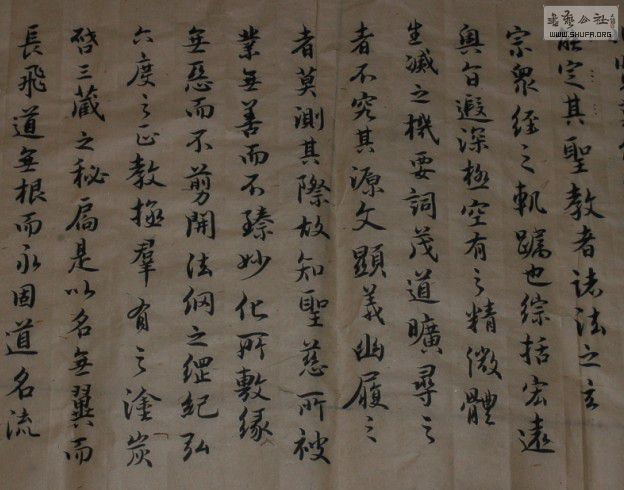 能定其聖教者諸法之玄
宗衆經之軌躅也綜括宏遠
奧旨遐深極空有之精微體
生滅之機要詞茂道曠尋之
者不究其源文顯義幽履之
者莫測其際故知聖慈所被
業無善而不臻妙化所敷緣
無惡而不剪開法網之綱紀弘
六度之正教拯羣有之塗炭
啓三藏之秘扃是以名無翼而
長飛道無根而永固道名流
書藝公社
WWW.SHUFA.ORG